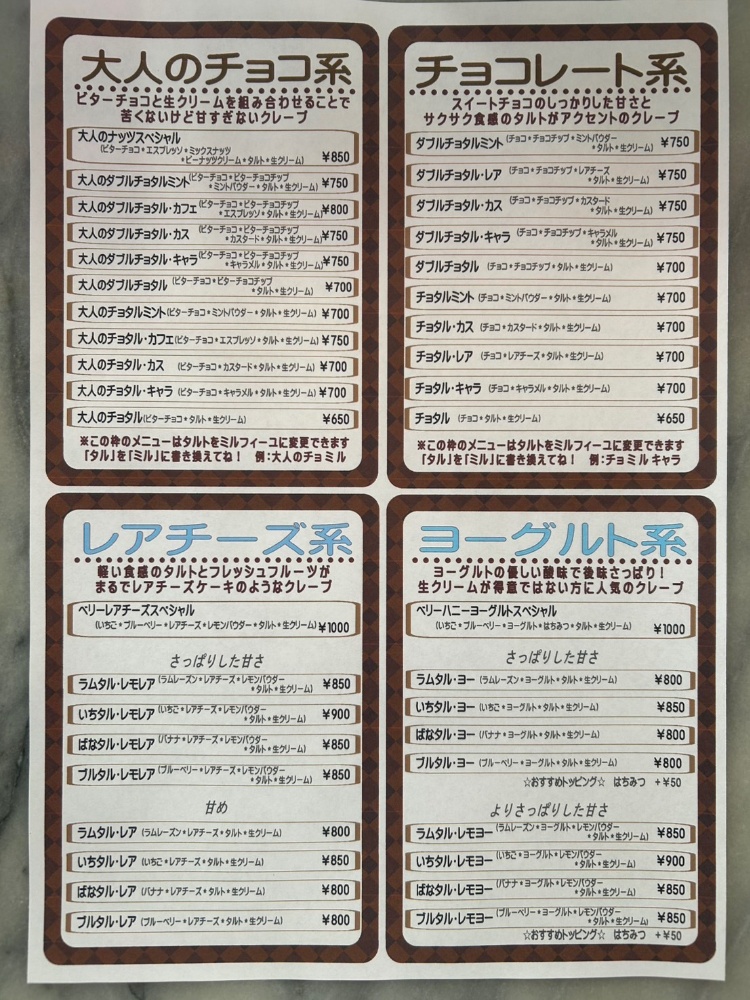 大人のチョコ系
ビターチョコと生クリームを組み合わせることで
苦くないけど甘すぎないクレープ
大人のナッツスペシャル
(ビターチョコ*エスプレッソ*ミックスナッツ
*ピーナッツクリーム*タルト*生クリーム) ¥850
大人のダブルチョタルミント(ビターチョコ*ビターチョコチップ
*ミントパウダー*タルト*生クリーム) ¥750
大人のダブルチョタル・カフェ(ビターチョコ*ビターチョコチップ
*エスプレッソ*タルト*生クリーム) ¥800
大人のダブルチョタル・カス (ビターチョコ*ビターチョコチップ
*カスタード*タルト*生クリーム) ¥750
大人のダブルチョタル・キャラ(ビターチョコ*ビターチョコチップ
*キャラメル*タルト*生クリーム) ¥750
大人のダブルチョタル (ビターチョコ*ビターチョコチップ
*タルト*生クリーム) ¥700
大人のチョタルミント(ビターチョコ*ミントパウダー*タルト*生クリーム) ¥700
大人のチョタル・カフェ(ビターチョコ*エスプレッソ*タルト*生クリーム) ¥750
大人のチョタル・カス (ビターチョコ*カスタード*タルト*生クリーム) ¥700
大人のチョタル・キャラ (ビターチョコ*キャラメル*タルト*生クリーム) ¥700
大人のチョタル(ビターチョコ*タルト*生クリーム) ¥650
※この枠のメニューはタルトをミルフィーユに変更できます
「タル」を「ミル」に書き換えてね! 例:大人のチョミル
チョコレート系
スイートチョコのしっかりした甘さと
サクサク食感のタルトがアクセントのクレープ
ダブルチョタルミント (チョコ*チョコチップ*ミントパウダー
*タルト*生クリーム) ¥750
ダブルチョタル・レア (チョコ*チョコチップ*レアチーズ
*タルト*生クリーム) ¥750
ダブルチョタル・カス (チョコ*チョコチップ*カスタード
*タルト*生クリーム) ¥750
ダブルチョタル・キャラ (チョコ*チョコチップ*キャラメル
*タルト*生クリーム) ¥750
ダブルチョタル (チョコ*チョコチップ*タルト*生クリーム) ¥700
チョタルミント (チョコ*ミントパウダー*タルト*生クリーム) ¥700
チョタル・カス (チョコ*カスタード*タルト*生クリーム) ¥700
チョタル・レア (チョコ*レアチーズ*タルト*生クリーム) ¥700
チョタル・キャラ (チョコ*キャラメル*タルト*生クリーム) ¥700
チョタル (チョコ*タルト*生クリーム) ¥650
※この枠のメニューはタルトをミルフィーユに変更できます
「タル」を「ミル」に書き換えてね! 例:チョミル キャラ
レアチーズ系
軽い食感のタルトとフレッシュフルーツが
まるでレアチーズケーキのようなクレープ
ベリーレアチーズスペシャル
(いちご*ブルーベリー*レアチーズ*レモンパウダー*タルト*生クリーム) ¥1000
さっぱりした甘さ
ラムタル・レモレア (ラムレーズン*レアチーズ*レモンパウダー
*タルト*生クリーム) ¥850
いちタル・レモレア (いちご*レアチーズ*レモンパウダー
*タルト*生クリーム) ¥900
ばなタル・レモレア (バナナ*レアチーズ*レモンパウダー
*タルト*生クリーム) ¥850
ブルタル・レモレア (ブルーベリー*レアチーズ*レモンパウダー
*タルト*生クリーム) ¥850
甘め
ラムタル・レア (ラムレーズン*レアチーズ*タルト*生クリーム) ¥800
いちタル・レア (いちご*レアチーズ*タルト*生クリーム) ¥850
ばなタル・レア (バナナ*レアチーズ*タルト*生クリーム) ¥800
ブルタル・レア (ブルーベリー*レアチーズ*タルト*生クリーム) ¥800
ヨーグルト系
ヨーグルトの優しい酸味で後味さっぱり!
生クリームが得意ではない方に人気のクレープ
ベリーハニーヨーグルトスペシャル
(いちご*ブルーベリー*ヨーグルト*はちみつ*タルト*生クリーム) ¥1000
さっぱりした甘さ
ラムタル・ヨー (ラムレーズン*ヨーグルト*タルト*生クリーム) ¥800
いちタル・ヨー (いちご*ヨーグルト*タルト*生クリーム) ¥850
ばなタル・ヨー (バナナ*ヨーグルト*タルト*生クリーム) ¥800
ブルタル・ヨー (ブルーベリー*ヨーグルト*タルト*生クリーム) ¥800
☆おすすめトッピング☆ はちみつ +¥50
よりさっぱりした甘さ
ラムタル・レモヨー (ラムレーズン*ヨーグルト*レモンパウダー
*タルト*生クリーム) ¥850
いちタル・レモヨー (いちご*ヨーグルト*レモンパウダー
*タルト*生クリーム) ¥900
ばなタル・レモヨー (バナナ*ヨーグルト*レモンパウダー
*タルト*生クリーム) ¥850
ブルタル・レモヨー (ブルーベリー*ヨーグルト*レモンパウダー
*タルト*生クリーム) ¥850
☆おすすめトッピング☆ はちみつ +¥50